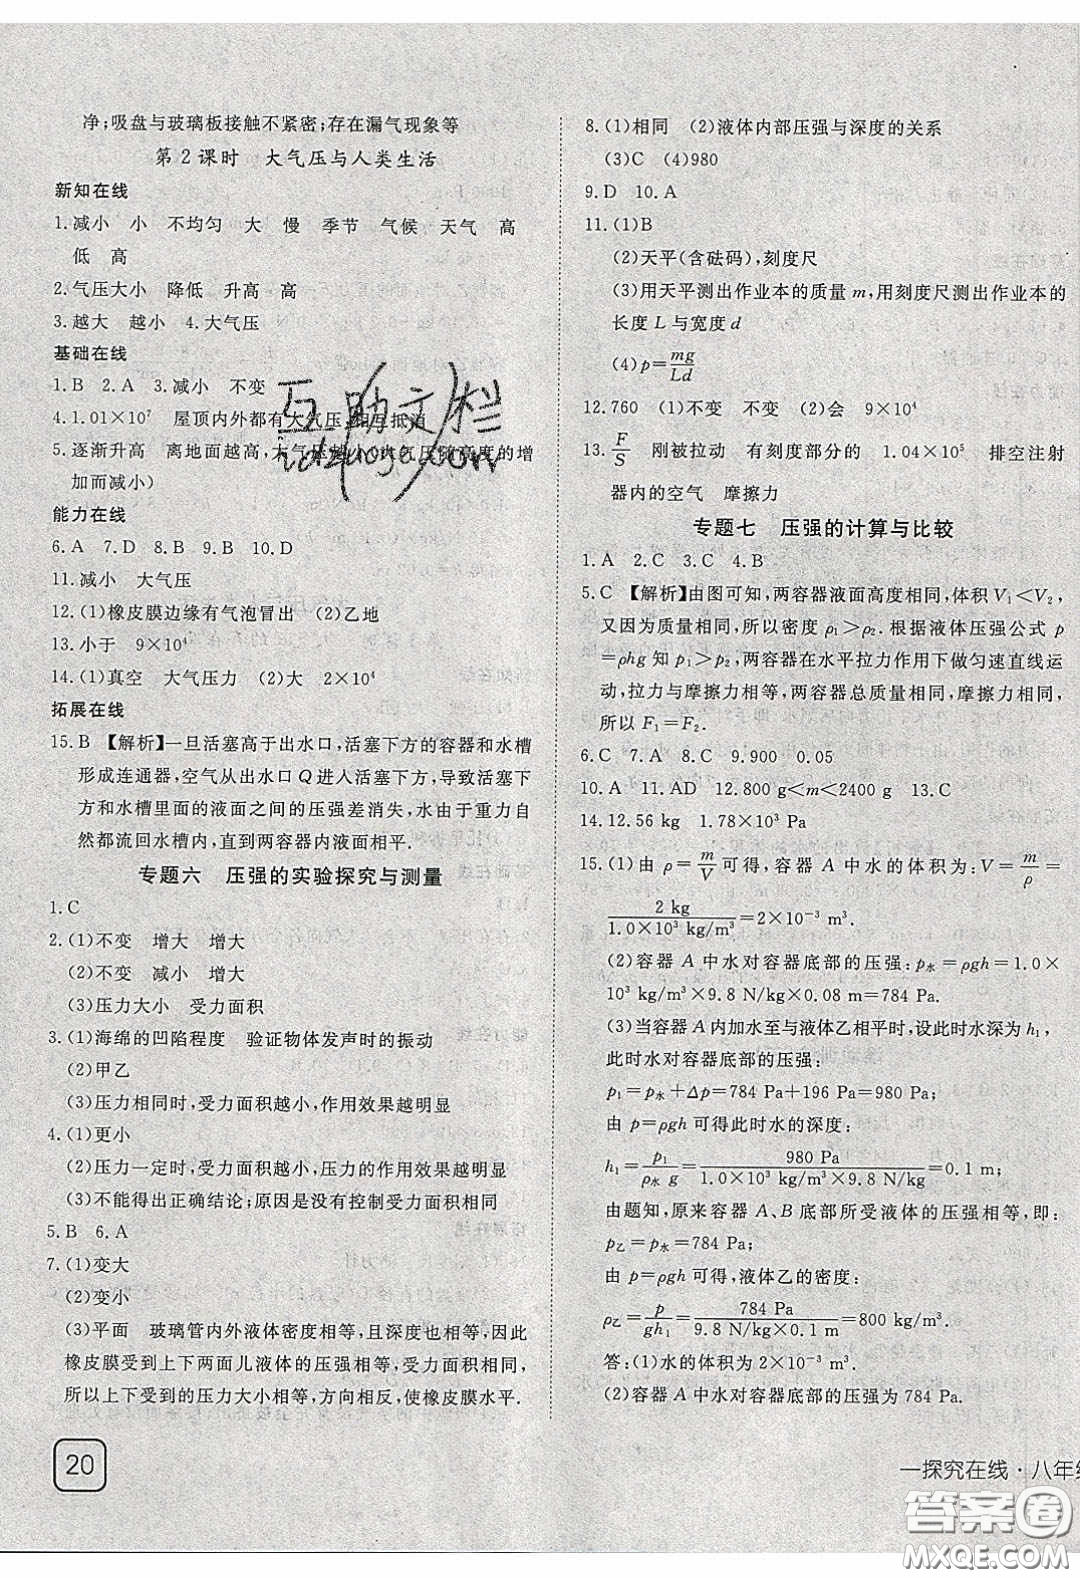 净;吸盘与玻璃板接触不紧密;存在漏气现象等
第2课时　大气压与人类生活
新知在线
1.减小　小　不均匀　大　慢　季节　气候　天气　高
低　高
2.气压大小　降低　升高　高
3.越大　越小　4.大气压
基础在线
1.B　2.A　3.减小　不变
4.1.01×10⁷　屋顶内外都有大气压,相互抵消
5.逐渐升高　离地面越高,大气压越小(大气压随高度的增
加而减小)
能力在线
6.A　7.D　8.B　9.B　10.D
11.减小　大气压
12.(1)橡皮膜边缘有气泡冒出　(2)乙地
13.小于　9×10⁴
14.(1)真空　大气压力　(2)大　2×10⁴
拓展在线
15.B　【解析】一旦活塞高于出水口,活塞下方的容器和水槽
形成连通器,空气从出水口Q进入活塞下方,导致活塞下
方和水槽里面的液面之间的压强差消失,水由于重力自
然都流回水槽内,直到两容器内液面相平.
专题六　压强的实验探究与测量
1.C
2.(1)不变　增大　增大
(2)不变　减小　增大
(3)压力大小　受力面积
3.(1)海绵的凹陷程度　验证物体发声时的振动
(2)甲乙
(3)压力相同时,受力面积越小,作用效果越明显
4.(1)更小
(2)压力一定时,受力面积越小,压力的作用效果越明显
(3)不能得出正确结论;原因是没有控制受力面积相同
5.B　6.A
7.(1)变大
(2)变小
(3)平面　玻璃管内外液体密度相等,且深度也相等,因此
橡皮膜受到上下两面儿液体的压强相等,受力面积相同,
所以上下受到的压力大小相等,方向相反,使橡皮膜水平.
20
8.(1)相同　(2)液体内部压强与深度的关系
(3)C　(4)980
9.D　10.A
11.(1)B
(2)天平(含砝码),刻度尺
(3)用天平测出作业本的质量m,用刻度尺测出作业本的
长度L与宽度d
(4)p=mg/Ld
12.760　(1)不变　不变　(2)会　9×10⁴
13.F/S　刚被拉动　有刻度部分的　1.04×10⁵　排空注射
器内的空气　摩擦力
专题七　压强的计算与比较
1.A　2.C　3.C　4.B
5.C　【解析】由图可知,两容器液面高度相同,体积V₁<V₂,
又因为质量相同,所以密度ρ₁>ρ₂.根据液体压强公式p
=ρhg知p₁>p₂,两容器在水平拉力作用下做匀速直线运
动,拉力与摩擦力相等,两容器总质量相同,摩擦力相同,
所以F₁=F₂.
6.C　7.A　8.C　9.900　0.05
10.A　11.AD　12.800 g<m<2400 g　13.C
14.12.56 kg　1.78×10³ Pa
15.(1)由ρ=m/V可得,容器A中水的体积为:V=m/ρ=
2 kg/(1.0×10³ kg/m³)=2×10⁻³ m³.
(2)容器A中水对容器底部的压强:p水=ρgh=1.0×
10³ kg/m³×9.8 N/kg×0.08 m=784 Pa.
(3)当容器A内加水至与液体乙相平时,设此时水深为h₁,
此时水对容器底部的压强:
p₁=p水+Δp=784 Pa+196 Pa=980 Pa;
由p=ρgh可得此时水的深度:
h₁=p₁/(ρ水 g)=980 Pa/(1.0×10³ kg/m³×9.8 N/kg)=0.1 m;
由题知,原来容器A、B底部所受液体的压强相等,即:
p乙=p水=784 Pa;
由p=ρgh可得,液体乙的密度:
ρ乙=p/(gh₁)=784 Pa/(9.8 N/kg×0.1 m)=800 kg/m³.
答:(1)水的体积为2×10⁻³ m³.
(2)容器A中水对容器底部的压强为784 Pa.
一探究在线·八年级
互助文栏
答案圈
MXQE.COM